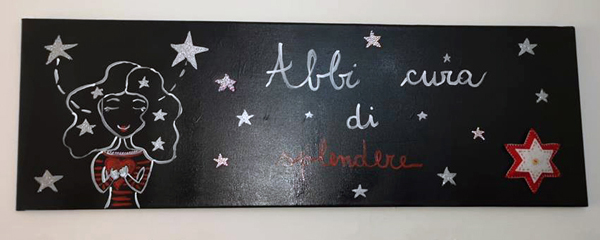 Abbi cura
di
splendere